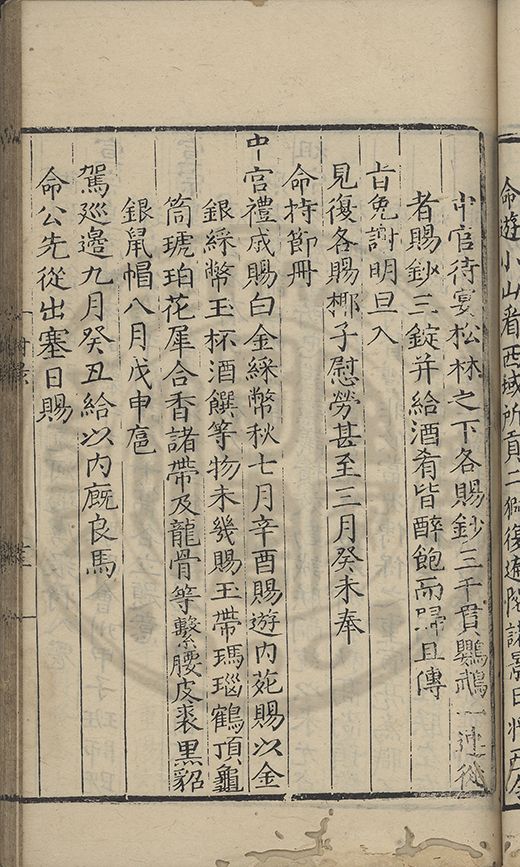 命遊小山看西域所貢二獅復遊
中官待宴松林之下各賜鈔三千貫鸚鵡一連從
者賜鈔三錠并給酒肴皆醉飽而歸且傳
旨免謝明旦入
見復各賜椰子慰勞甚至三月癸未奉
命持節冊
中宮禮成賜白金綵幣秋七月辛酉賜遊內苑賜以金
銀綵幣玉杯酒饌等物未幾賜玉帶瑪瑙鶴頂龜
筒琥珀花犀合香諸帶及龍骨等繫腰皮裘黑貂
銀鼠帽八月戊申扈
駕巡邊九月癸丑給以內廐良馬
命公先從出塞日賜
附錄